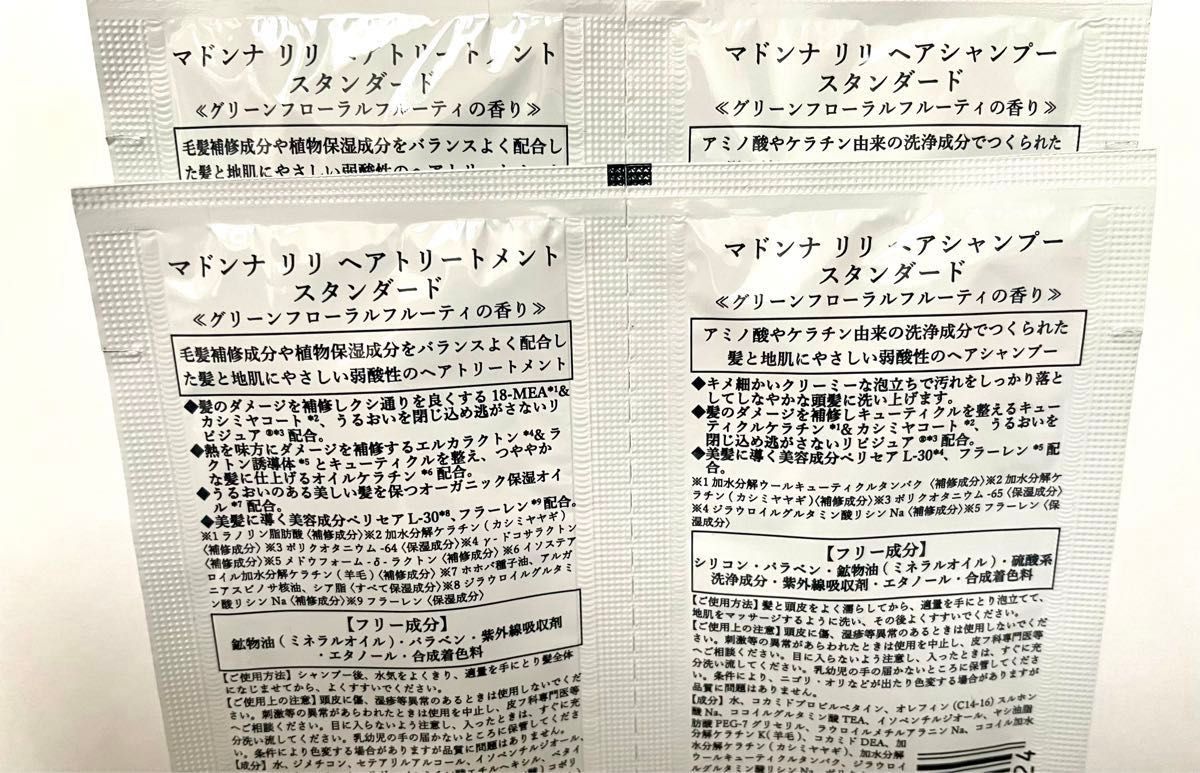 マドンナ リリ ヘアトリートメント
スタンダード
≪グリーンフローラルフルーティの香り≫
毛髪補修成分や植物保湿成分をバランスよく配合し
た髪と地肌にやさしい弱酸性のヘアトリ
マドンナ リリ ヘアシャンプー
スタンダード
≪グリーンフローラルフルーティの香り≫
アミノ酸やケラチン由来の洗浄成分でつくられた
マドンナ リリ ヘアトリートメント
スタンダード
≪グリーンフローラルフルーティの香り≫
毛髪補修成分や植物保湿成分をバランスよく配合し
た髪と地肌にやさしい弱酸性のヘアトリートメント
◆髪のダメージを補修しクシ通りを良くする 18-MEA*1&
カシミヤコート*2、うるおいを閉じ込め逃がさないリ
ピジュア®*3 配合。
◆熱を味方にダメージを補修するエルカラクトン*4& ラ
クトン誘導体*5 とキューティクルを整え、つややか
な髪に仕上げるオイルケラチン*6 配合。
◆うるおいのある美しい髪を保つオーガニック保湿オイ
ル*7 配合。
◆美髪に導く美容成分ペリセア L-30*8、フラーレン*9 配合。
※1 ラノリン脂肪酸〈補修成分〉※2 加水分解ケラチン (カシミヤヤギ)
〈補修成分〉※3 ポリクオタニウム -64〈保湿成分〉※4 γ - ドコサラクトン
〈補修成分〉※5 メドウフォーム - δ - ラクトン〈補修成分〉※6 イソステア
ロイル加水分解ケラチン (羊毛)〈補修成分〉※7 ホホバ種子油、アルガ
ニアスピノサ核油、シア脂〈すべて保湿成分〉※8 ジラウロイルグルタミ
ン酸リシン Na〈補修成分〉※9 フラーレン〈保湿成分〉
【フリー成分】
鉱物油 (ミネラルオイル)・パラベン・紫外線吸収剤
・エタノール・合成着色料
【ご使用方法】シャンプー後、水気をよくきり、適量を手にとり髪全体
になじませてから、よくすすいでください。
【ご使用上の注意】頭皮に傷、湿疹等異常のあるときは使用しないでくだ
さい。刺激等の異常があらわれたときは使用を中止し、皮フ科専門医等
へご相談ください。目に入らないよう注意し、入ったときは、すぐに充
分洗い流してください。乳幼児の手の届かないところに保管してくださ
い。条件により色変する場合がありますが品質に問題はありません。
【成分】水、ジメチコン、ステアリルアルコール、イソペンチルジオール、
マドンナ リリ ヘアシャンプー
スタンダード
≪グリーンフローラルフルーティの香り≫
アミノ酸やケラチン由来の洗浄成分でつくられた
髪と地肌にやさしい弱酸性のヘアシャンプー
◆キメ細かいクリーミーな泡立ちで汚れをしっかり落と
してしなやかな頭髪に洗い上げます。
◆髪のダメージを補修しキューティクルを整えるキュー
ティクルケラチン*1& カシミヤコート*2、うるおいを
閉じ込め逃がさないリピジュア®*3 配合。
◆美髪に導く美容成分ペリセア L-30*4、フラーレン*5 配
合。
※1 加水分解ウールキューティクルタンパク〈補修成分〉※2 加水分解ケ
ラチン (カシミヤヤギ)〈補修成分〉※3 ポリクオタニウム -65〈保湿成分〉
※4 ジラウロイルグルタミン酸リシン Na〈補修成分〉※5 フラーレン〈保
湿成分〉
【フリー成分】
シリコン・パラベン・鉱物油 (ミネラルオイル)・硫酸系
洗浄成分・紫外線吸収剤・エタノール・合成着色料
【ご使用方法】髪と頭皮をよく濡らしてから、適量を手にとり泡立てて、
地肌をマッサージするように洗い、その後よくすすいでください。
【ご使用上の注意】頭皮に傷、湿疹等異常のあるときは使用しないでくだ
さい。刺激等の異常があらわれたときは使用を中止し、皮フ科専門医等
へご相談ください。目に入らないよう注意し、入ったときは、すぐに充
分洗い流してください。乳幼児の手の届かないところに保管してくださ
い。条件により、ニゴリ・オリなどが出たり色変する場合がありますが
品質に問題はありません。
【成分】水、コカミドプロピルベタイン、オレフィン (C14-16) スルホン
酸 Na、ココイルグルタミン酸 TEA、イソペンチルジオール、ヤシ油脂
肪酸 PEG-7 グリセリル、ラウロイルメチルアラニン Na、ココイル加水
分解ケラチン K (羊毛)、コカミド DEA、加
水分解ケラチン (カシミヤヤギ)、加水分解
ウールキューティクルタンパク、ジラウロイ
ルグルタミン酸リシン Na、
24